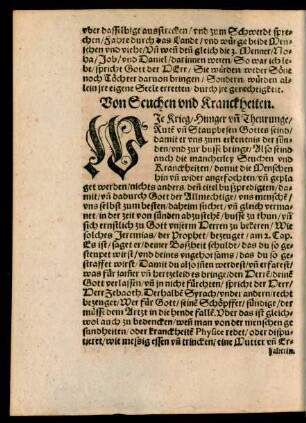 vber dasselbige ausstrecken / vnd zum Schwerdt spre-
chen / Fahre durch das Lande / vnd würge beide Men-
schen vnd viehe / Vñ weñ deñ gleich die 3. Menner / No-
ha / Job / vnd Daniel / dar innen weren / So war ich le-
be / spricht Gott der HErr / Sie würden weder Söne
noch Töchter daruon bringen / Sondern würden al-
lein jre eigene Seele erretten / durch jre gerechtigkeit.
Von Seuchen vnd Kranckheiten.
WJe Krieg / Hunger vñ Thewrunge /
Rute vñ Staupbesen Gottes seind /
damit er vns zum erkentnis der sün-
den / vnd zur busse bringe / Also sind
auch die mancherley Seuchen vnd
Kranckheiten / damit die Menschen
hin vñ wider angefochten / vñ gepla
get werden / nichts anders den eitel bußpredigten / da-
mit / vñ dadurch Gott der Allmechtige / vns mensche /
vns selbst zum besten daheim suchet / vñ gleich verma-
net / in der zeit von sünden abzustehe / busse zu thun / vñ
sich ernstlich zu Gott vnserm Herren zu bekeren / Wie
solches Jeremias / der Prophet / bezeuget / am 2. Cap.
Es ist / saget er / deiner Boßheit schuldt / das du so ge-
steupet wirst / vnd deines vngehorsams / das du so ge-
straffet wirst / Damit du also jnnen werdest / vñ erfarst /
was für jamer vñ hertzeleid es bringe / den Herrē deinē
Gott verlassen / vñ jn nicht fürchten / spricht der Herr /
Herr Zebaoth. Derhalbē Syrach / vnder andern / recht
bezeuget / Wer für Gott / seinē Schöpffer / sündige / der
müsse dem Artzt in die hende fallē. Vber das ist gleich-
wol auch zu bedencken / weñ man von der menschen ge
sundheiten / oder kranckheitē Physice redet / oder dispu-
tieret / wie messig essen vñ trincken / eine Mutter vñ Er-
halterin